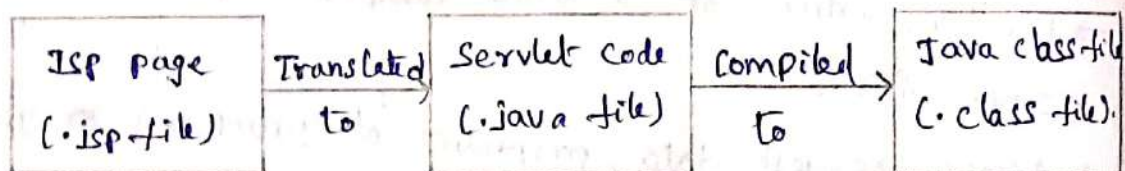 Jsp page
(.jsp file)
Translated
to
Servlet code
(.java file)
Compiled
to
Java class file
(.class file).